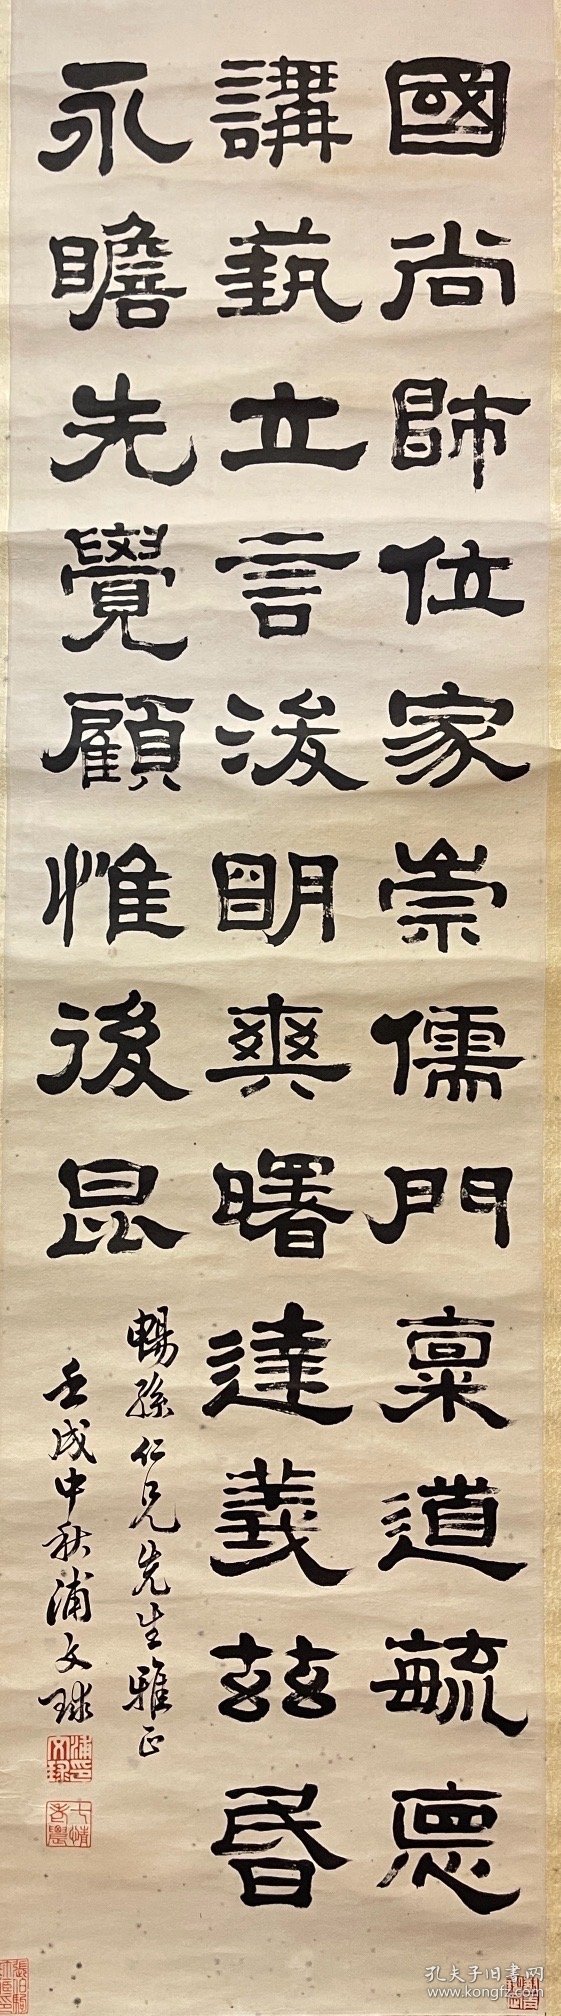 國尚師位家崇儒門稟道毓惪
講藝立言浚明爽曙達義茲昏
永瞻先覺顧惟後昆
暢孫仁兄先生雅正
壬戌中秋浦文球
浦文球印
孔夫子旧书网
www.kongfz.com